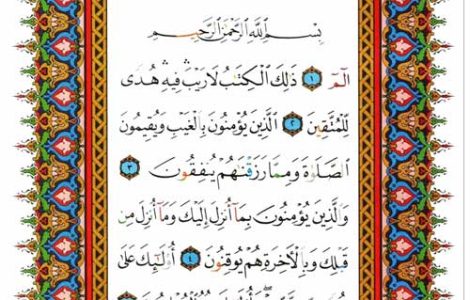 بِسْمِ اللَّهِ الرَّحْمَٰنِ الرَّحِيمِ
الٓمٓ ١ ذَٰلِكَ الْكِتَٰبُ لَا رَيْبَ ۛ فِيهِ ۛ هُدًى
لِّلْمُتَّقِينَ ٢ الَّذِينَ يُؤْمِنُونَ بِالْغَيْبِ وَيُقِيمُونَ
الصَّلَوٰةَ وَمِمَّا رَزَقْنَٰهُمْ يُنفِقُونَ ٣
وَالَّذِينَ يُؤْمِنُونَ بِمَا أُنزِلَ إِلَيْكَ وَمَا أُنزِلَ مِن
قَبْلِكَ وَبِالْآخِرَةِ هُمْ يُوقِنُونَ ٤ أُولَٰئِكَ عَلَىٰ